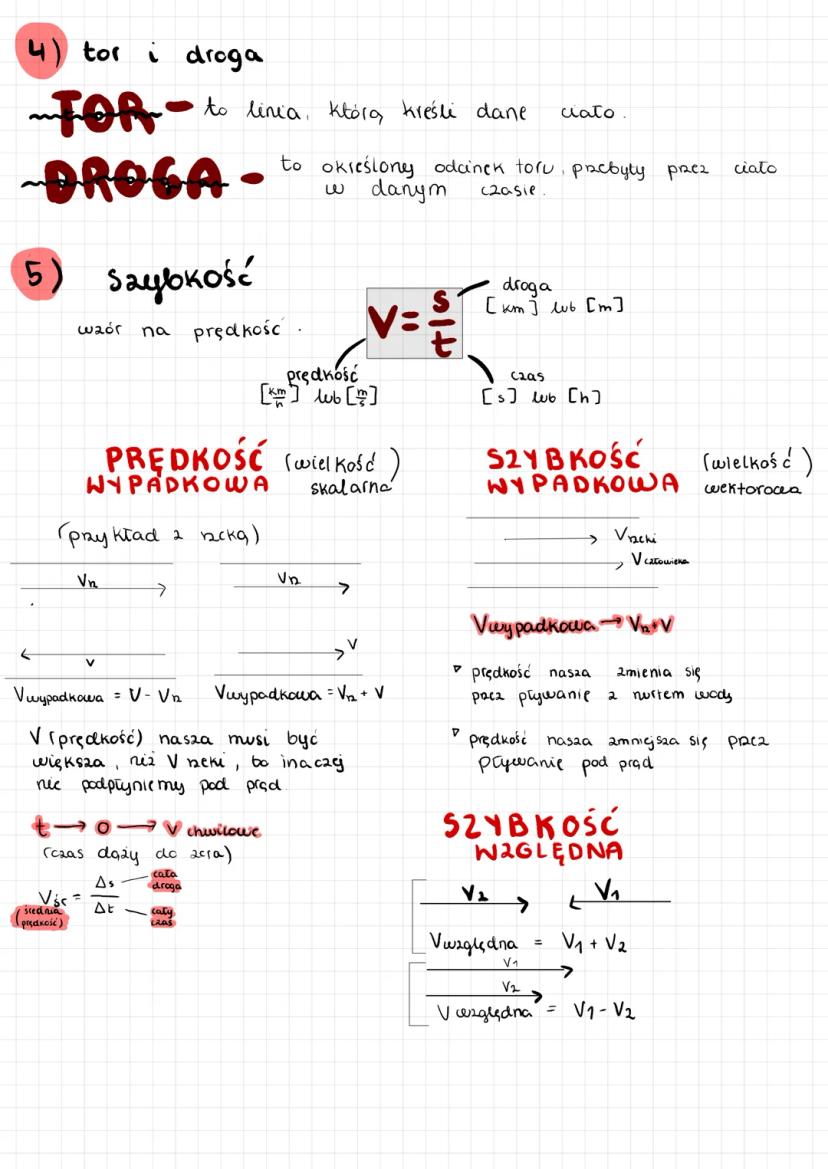 4) tor i droga
TOR - to linia, którą kreśli dane ciało.
DROGA - to określony odcinek toru, przebyty przez ciało
w danym czasie.
5) szybkość
wzór na prędkość.
V = s/t
droga
[km] lub [m]
prędkość
[km/h] lub [m/s]
czas
[s] lub [h]
PRĘDKOŚĆ WYPADKOWA (wielkość skalarna)
(przykład z rzeką)
Vrz
v
Vwypadkowa = V - Vrz
Vrz
V
Vwypadkowa = Vrz + V
V (prędkość) nasza musi być
większa, niż V rzeki, bo inaczej
nie podpłyniemy pod prąd
t → 0 → V chwilowe
(czas dąży do zera)
Vśr = Δs/Δt
cała droga
cały czas
(średnia prędkość)
SZYBKOŚĆ WYPADKOWA (wielkość wektorowa)
Vrzeki
Vczłowieka
Vwypadkowa → Vrz+V
▿ prędkość nasza zmienia się
przez pływanie z nurtem wody
▿ prędkość nasza zmniejsza się przez
pływanie pod prąd
SZYBKOŚĆ
WZGLĘDNA
V2 V1
Vwzględna = V1 + V2
V1
V2
V względna = V1 - V2